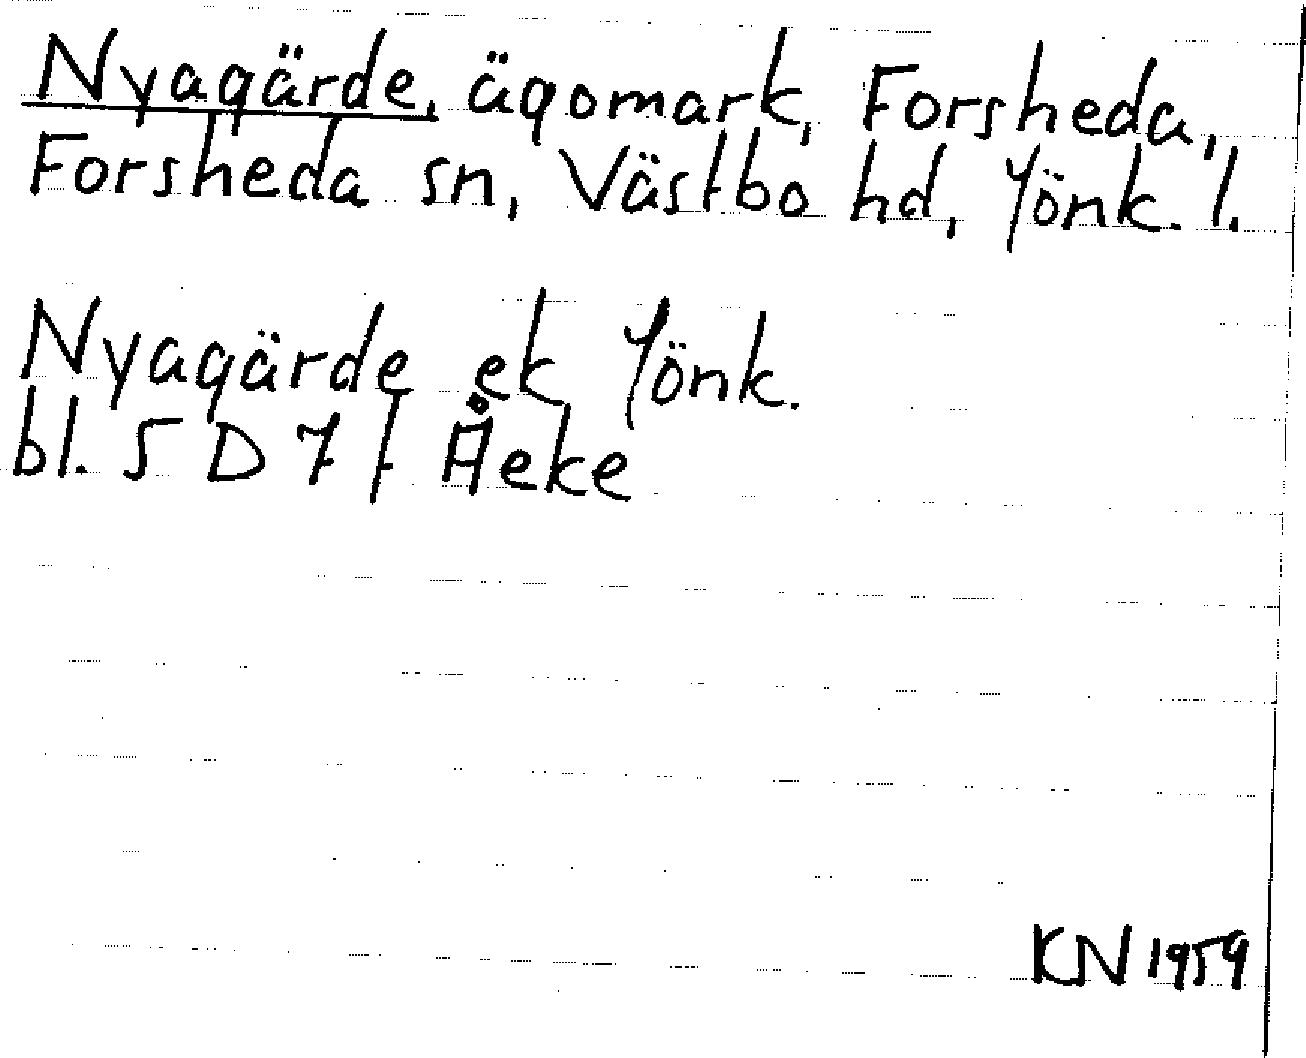 Nyagärde, ägomark, Forsheda,
Forsheda sn, Västbo hd, Jönk. l.
Nyagärde ek Jönk.
bl. 5 D 7 f Åeke
KN 1959